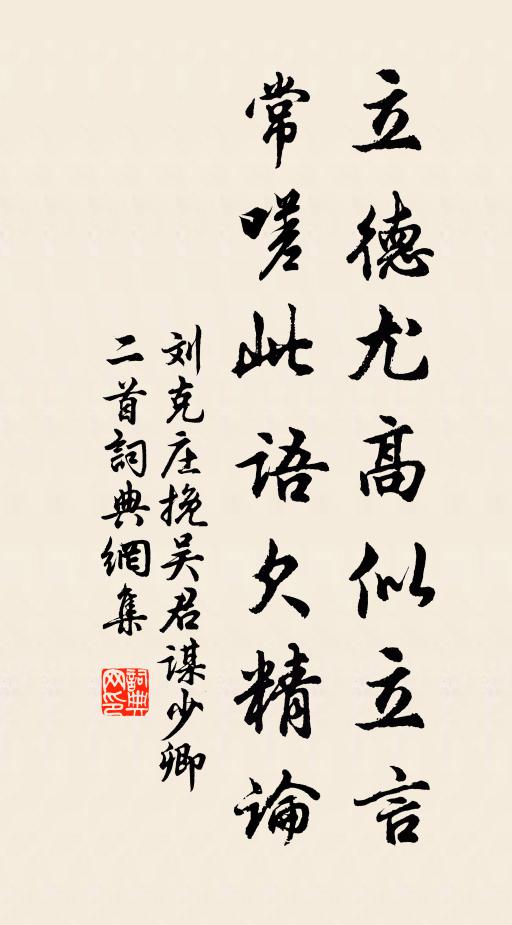 立德尤高似立言
常嗟此语欠精論
刘克庄挽吴君谋少卿
二首詞典網集
詞典网印